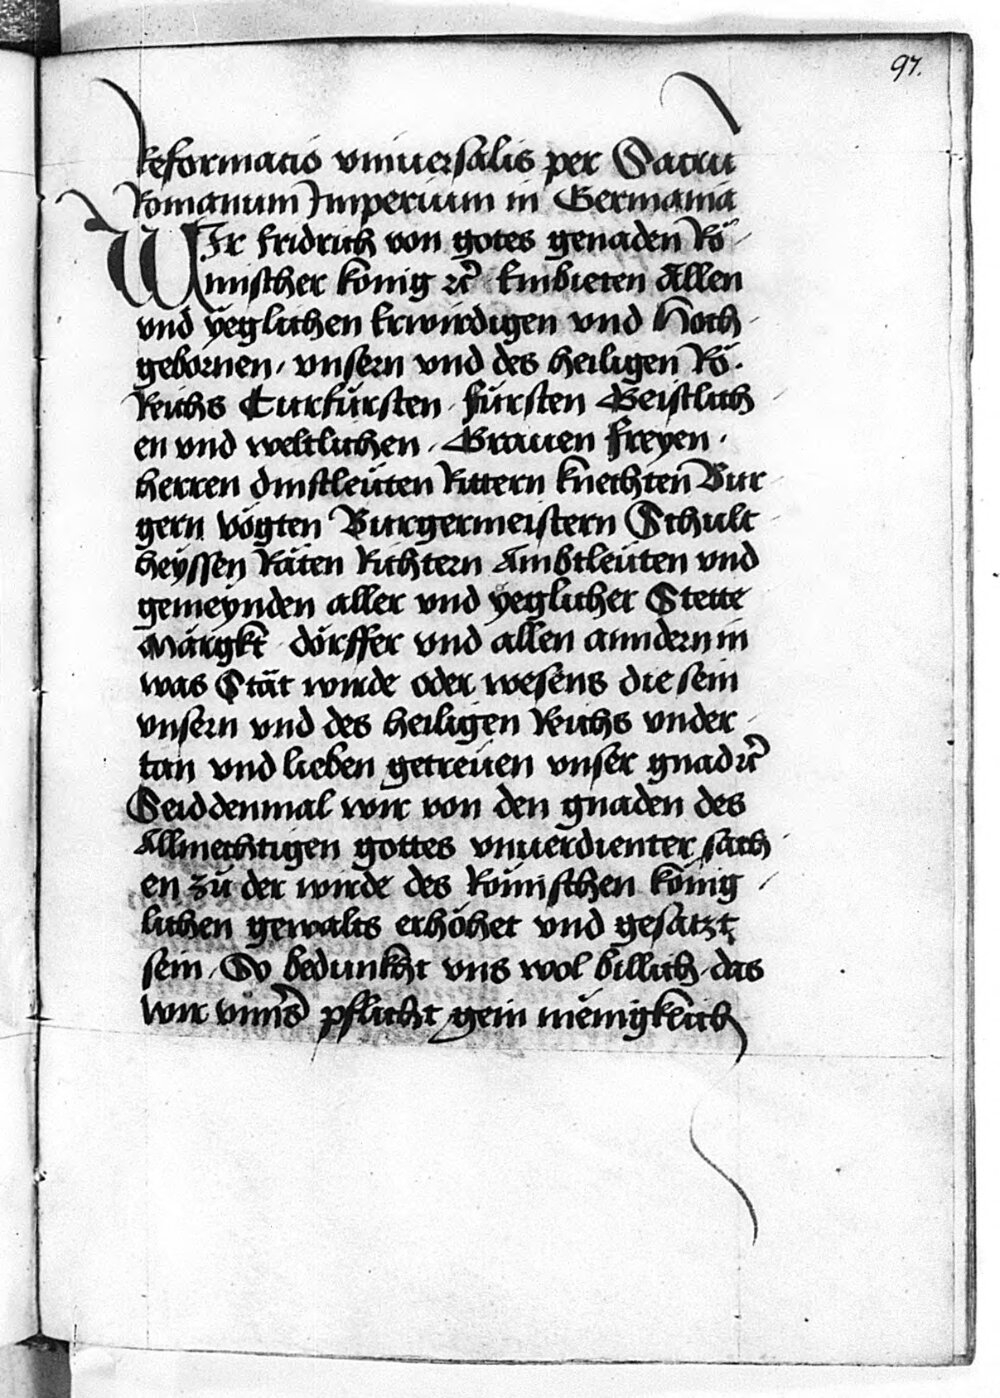 97.
Reformacio vniuersalis per Sacru
Romanum Imperium in Germania
WIr fridrich von gotes genaden Rö
mischer konig ꝛc̃ Embieten Allen
vnd yeglichen Erwirdigen vnd Hoch
gebornen, vnsern vnd des heiligen Rö.
Reichs Curfürsten, fürsten Geistlich
en vnd weltlichen, Grauen freyen,
herren dinstleüten Rittern knechten Bur
gern vögten Burgermeistern Schult
heyssen Räten Richtern Ambtleüten vnd
gemeynden aller vnd yeglicher Stette
Märgkt dörffer vnd allen anndern in
was Stät wirde oder wesens die sein
vnsern vnd des heiligen Reichs vnder
tan vnd lieben getreüen vnser gnad ꝛc̃
Seiddenmal wir von den gnaden des
Allmechtigen gottes vnuerdienter sach
en zu der wirde des Römischen konig
lichen gewalts erhöhet vnd gesatzt
sein, So bedunkht vns wol billich, das
wir vnns̃ pflicht gein menigklich